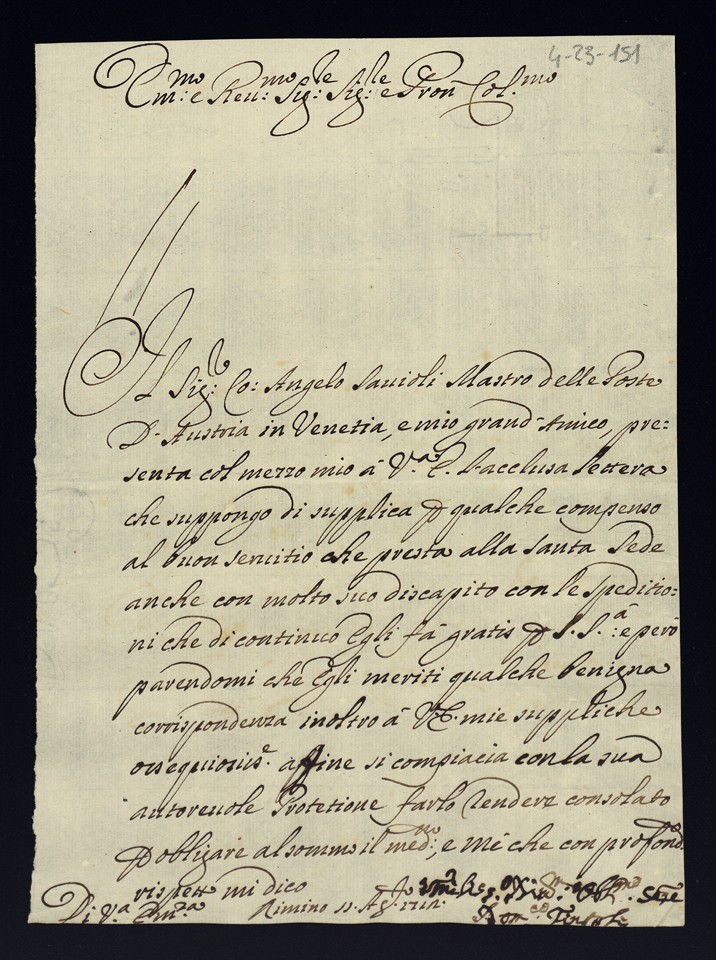 4-23-151
Em:mo e Reu:mo Sig:re Sig:re e Pron Col.mo
Il Sig:r Co: Angelo Sauioli Mastro delle Poste
D'Austria in Venetia, e mio grand'Amico, pre=
senta col mezzo mio à V.a E. l'acclusa lettera
che suppongo di supplica p qualche compenso
al buon seruitio che presta alla Santa Sede
anche con molto suo discapito con le speditio=
ni che di continuo Egli fà gratis p S. S.:à e però
parendomi che Egli meriti qualche benigna
corrispondenza inoltro à VE. mie suppliche
ossequiosis.e affine si compiacia con la sua
autoreuole Protetione farlo rendere consolato
p obligare al sommo il med:mo, e mè che con profond.o
rispetto mi dico
Di V.a Em.za
Rimino 11. Ag. 1712.